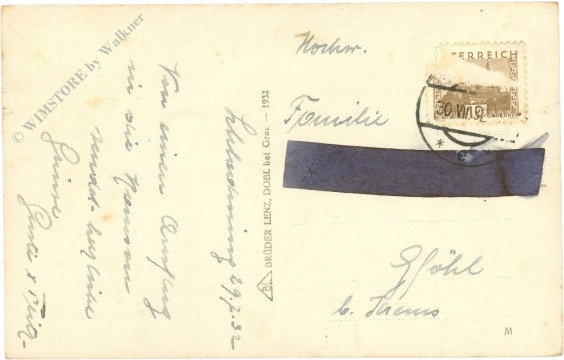 Schladming 29.7.32
Von einem Ausflug
in die Ramsau
sendet herzliche
Grüsse
© WIMSTORE by Walkner
BL BRÜDER LENZ, DOBL bei Graz — 1932
Hochw.
Familie
Gföhl
b. Krems
ÖSTERREICH
30.VII.32
M